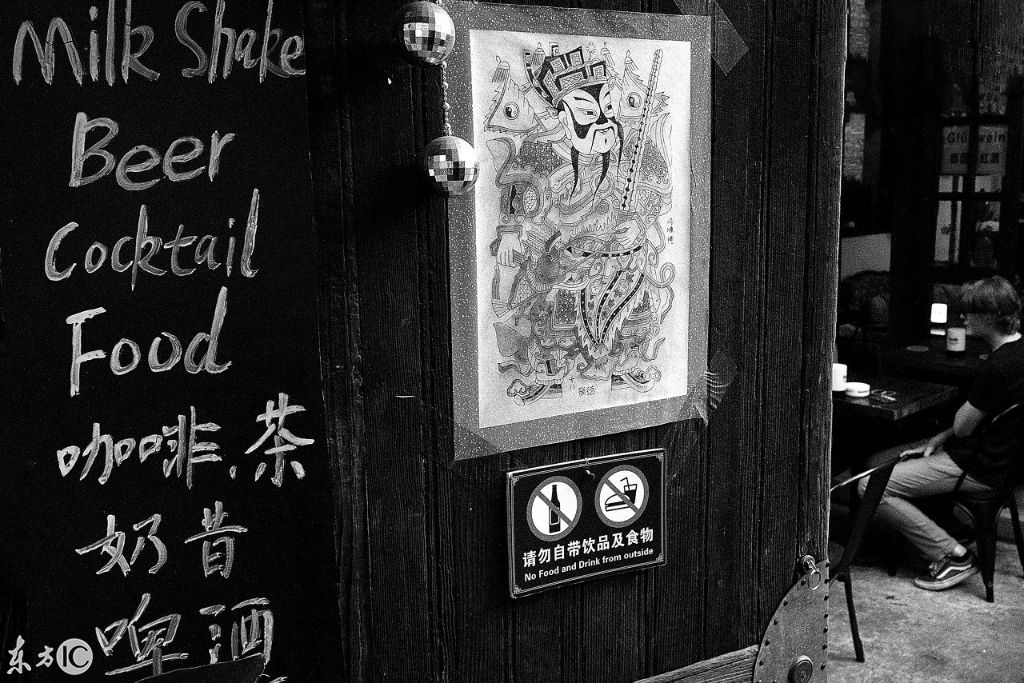 Milk Shake
Beer
Cocktail
Food
咖啡.茶
奶昔
啤酒
请勿自带饮品及食物
No Food and Drink from outside
Glühwein
东方IC